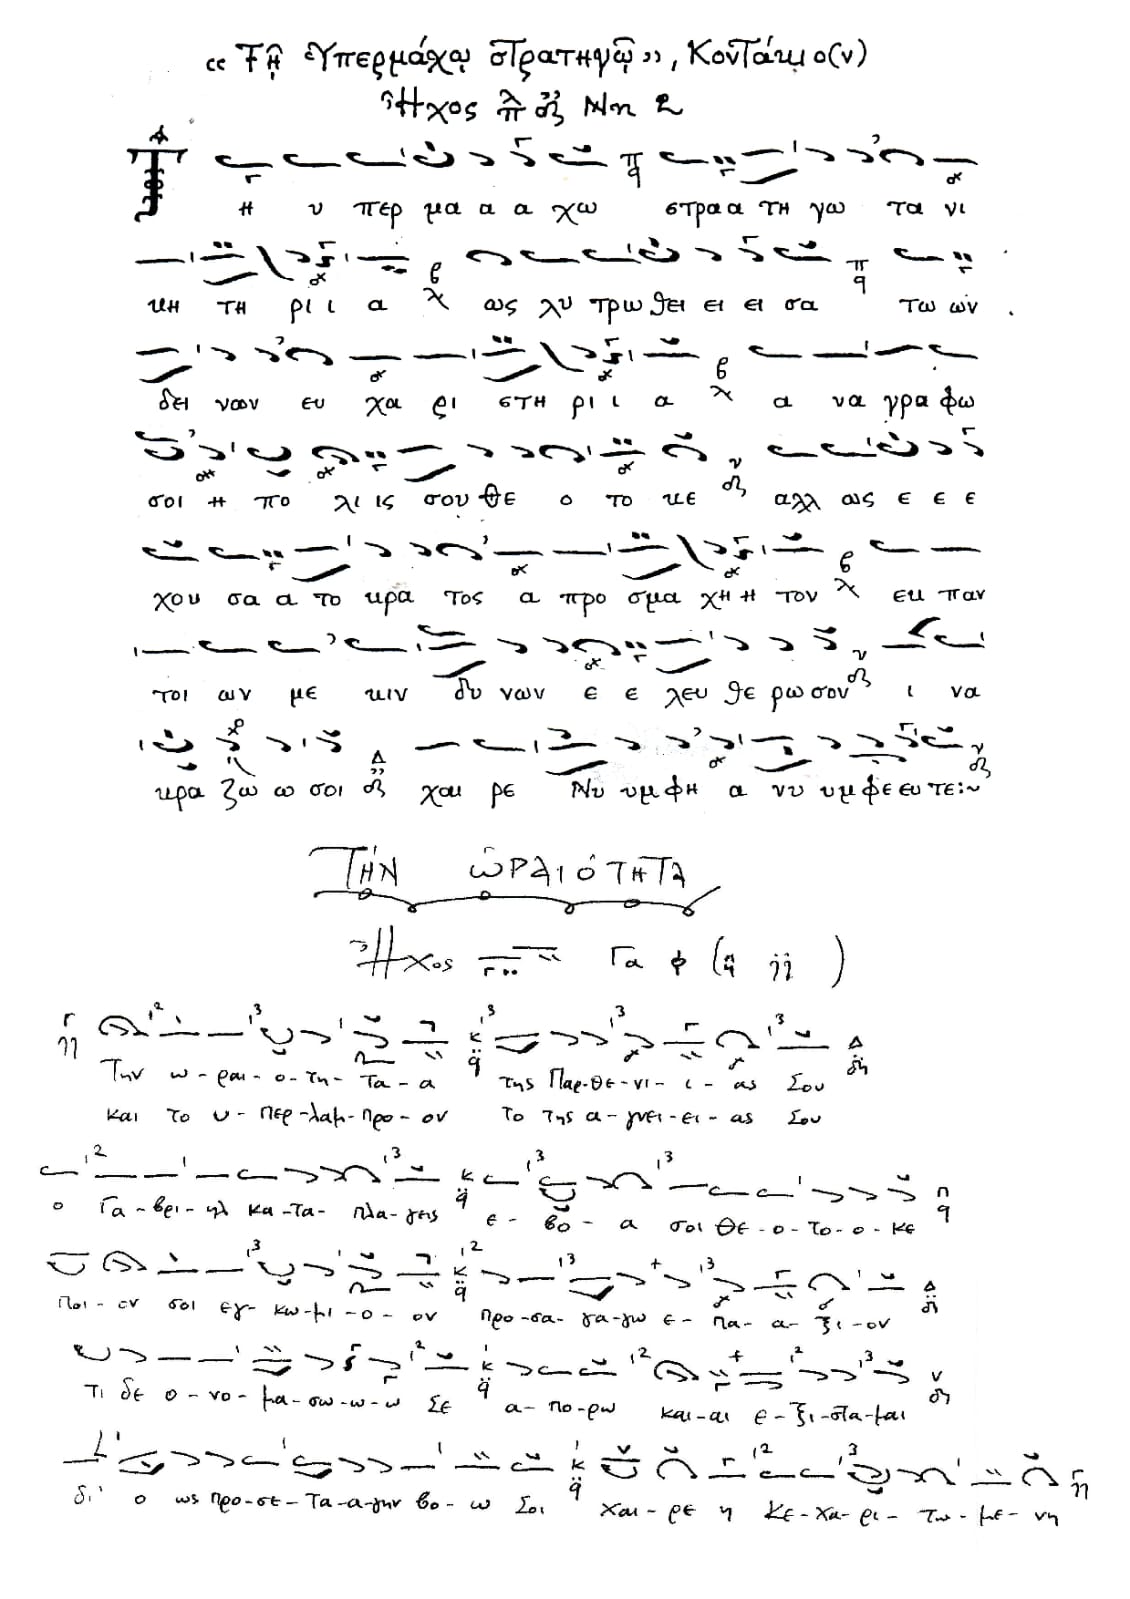 «Τῇ Ὑπερμάχῳ Στρατηγῷ», Κοντάκιο(ν)
Ἦχος πλ δ Νη
Τη υ περ μα α α χω στρα α τη γω τα νι
κη τη ρι ι α ως λυ τρω θει ει ει σα τω ων
δει νων ευ χα ρι στη ρι ι α α να γρα φω
σοι η πο λι ις σου θε ο το κε αλλ ως ε ε ε
χου σα α το κρα τος α προ σμα χη η τον εκ παν
τοι ων με κιν δυ νων ε ε λευ θε ρω σον ι να
κρα ζω ω σοι χαι ρε Νυ υμ φη α νυ υμ φε ευ τε:~
ΤΗΝ ὩΡΑΙΌΤΗΤΑ
Ἦχος Γα
Την ω-ραι-ο-τη-τα-α της Παρ-θε-νι-ι-ας Σου
και το υ-περ-λαμ-προ-ον το της α-γνει-ει-ας Σου
ο Γα-βρι-ηλ κα-τα-πλα-γεις ε-βο-α σοι Θε-ο-το-ο-κε
ποι-ον σοι εγ-κω-μι-ο-ον προ-σα-γα-γω ε-πα-α-ξι-ον
τι δε ο-νο-μα-σω-ω-ω Σε α-πο-ρω και-αι ε-ξι-στα-μαι
δι' ο ως προ-σε-τα-α-γην βο-ω Σοι χαι-ρε η κε-χα-ρι-τω-με-νη